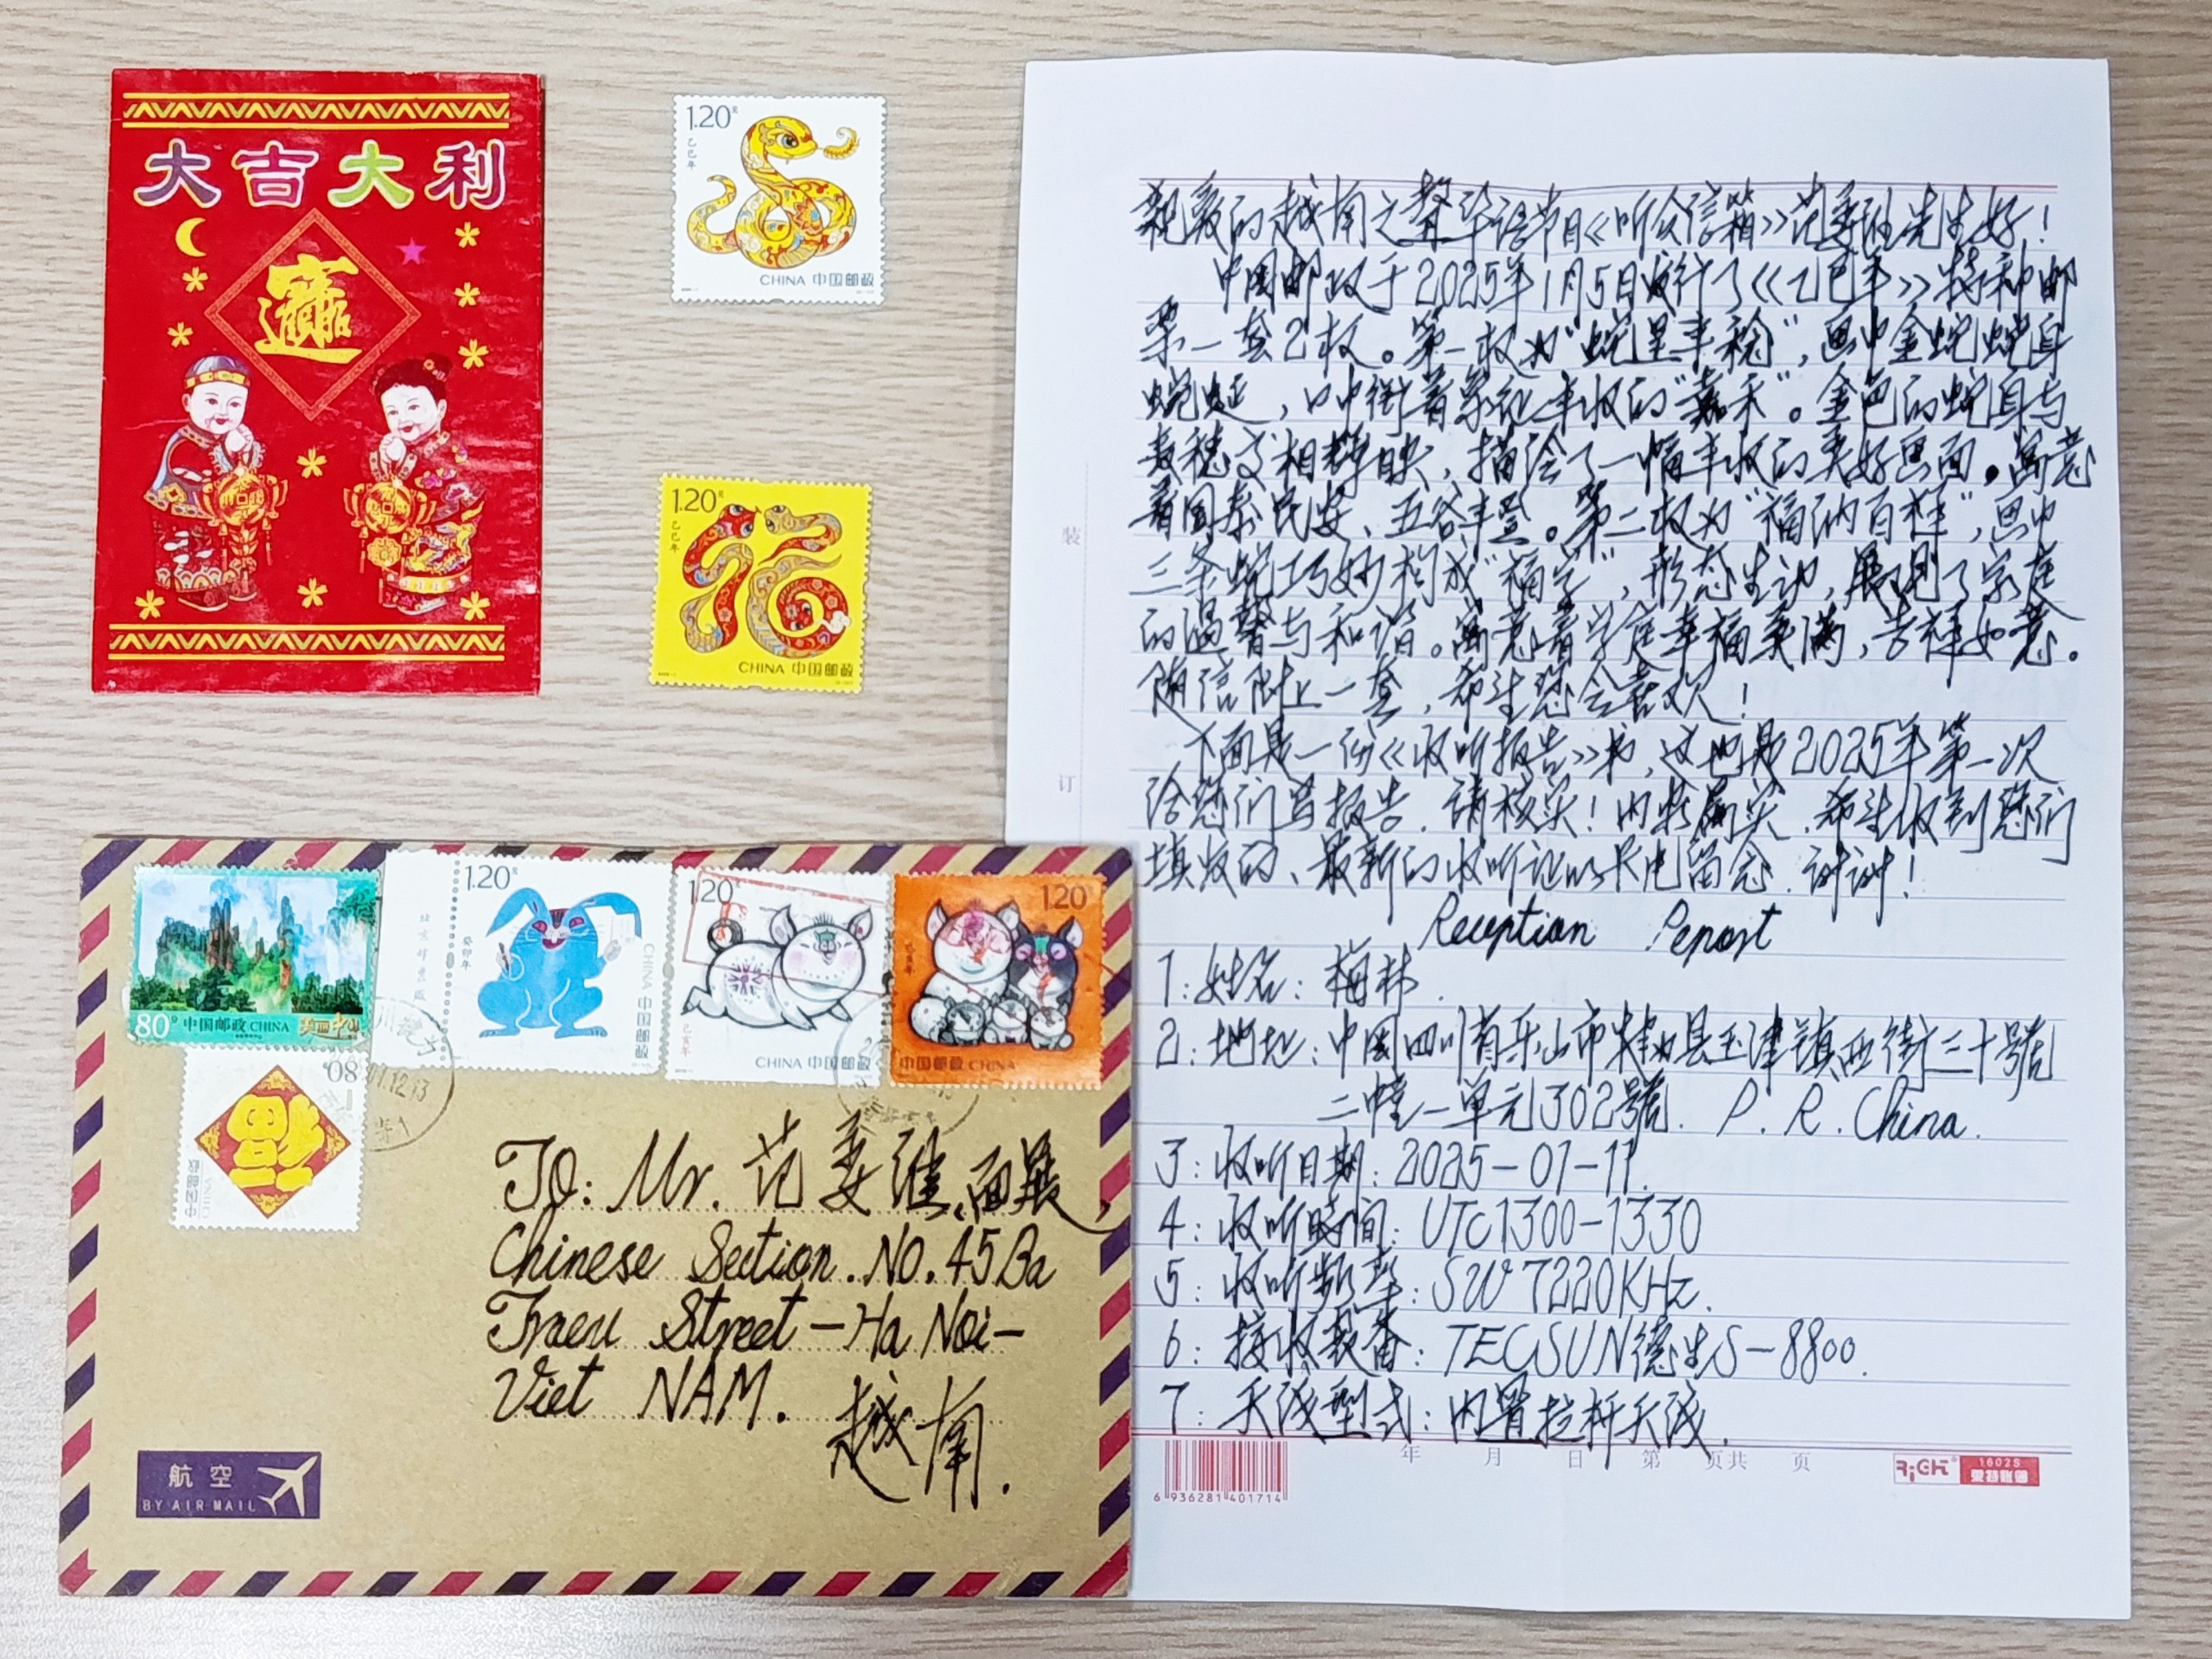 大吉大利
1.20元
乙巳年
CHINA 中国邮政
1.20元
乙巳年
CHINA 中国邮政
亲爱的越南之声华语节目《听众信箱》范 先生好！
中国邮政于2025年1月5日发行了《乙巳年》特种邮
票一套2枚。第一枚为“蛇呈丰稔”，画中金蛇蛇身
蜿蜒，口中衔着象征丰收的“嘉禾”。金色的蛇身与
麦穗交相辉映，描绘了一幅丰收的美好画面。寓意
着国泰民安、五谷丰登。第二枚为“福纳百祥”，画中
三条蛇巧妙构成“福字”，形态生动，展现了家庭
的温馨与和谐。寓意着家庭幸福美满，吉祥如意。
随信附上一套，希望您会喜欢！
下面是一份《收听报告》书，这也是2025年第一次
给您们写报告，请核实！内容 实，希望收到您们
填发的、最新的收听证明卡 留念，谢谢！
Reception Report
1：姓名：梅林.
2：地址：中国四川省乐山市犍为县玉津镇西街三十號
二幢一单元302號. P. R. China.
3：收听日期：2025-01-11.
4：收听時间：UTC1300-1330
5：收听频率：SW 7220KHz.
6：接收装备：TECSUN德生S-8800.
7：天线型式：内置拉杆天线.
装
订
年 月 日 第 页共 页
6 936281 401714
1602S
80分 中国邮政 CHINA 美丽中国
1.20元
癸卯年
CHINA 中国邮政
1.20元
己亥年
CHINA 中国邮政
1.20
己亥年
中国邮政 CHINA
80分
中国邮政
CHINA
To: Mr. 范
Chinese Section. NO. 45 Ba
Trieu Street - Ha Noi-
Viet NAM.
越南.
航空
BY AIR MAIL